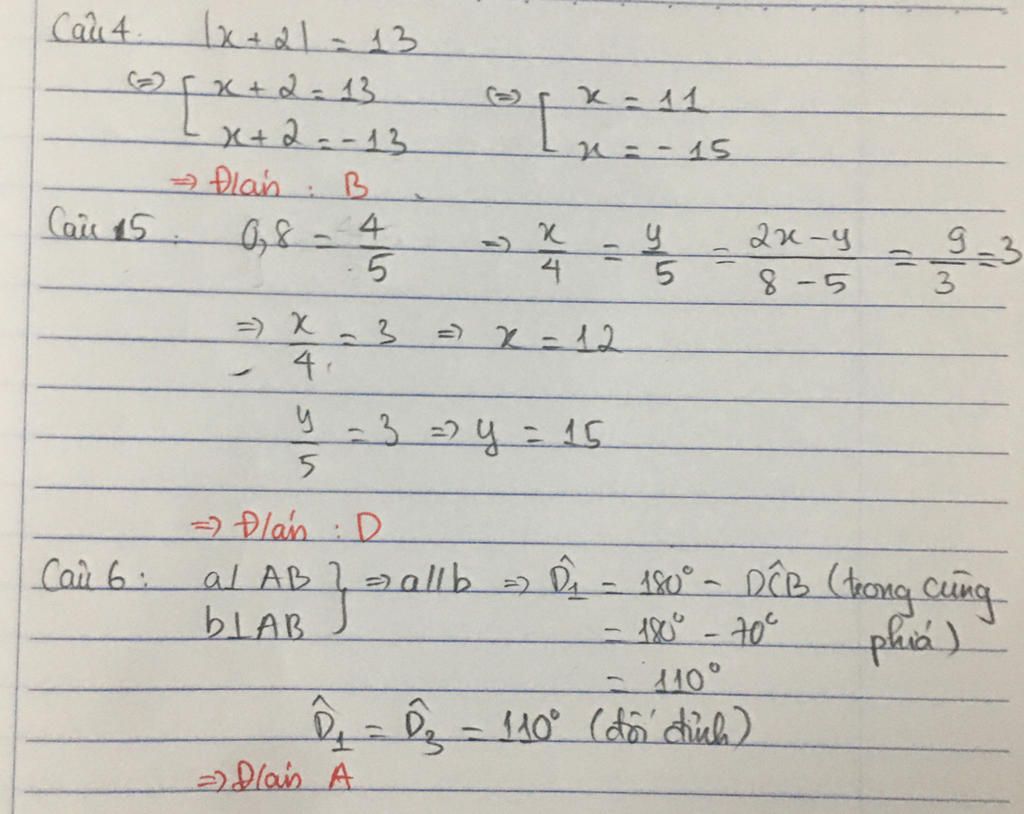 Câu 4. |x + 2| = 13
(=) [ x + 2 = 13 (=) [ x = 11
x + 2 = -13 x = -15
=> Đ/án : B
Câu 15 : 0,8 = 4/5 => x/4 = y/5 = (2x - y)/(8 - 5) = 9/3 = 3
=> x/4 = 3 => x = 12
y/5 = 3 => y = 15
=> Đ/án : D
Câu 6 : a ⊥ AB } => a // b => D̂₁ = 180° - DĈB (trong cùng
b ⊥ AB = 180° - 70° phiá)
= 110°
D̂₁ = D̂₃ = 110° (đối đỉnh)
=> Đ/án A